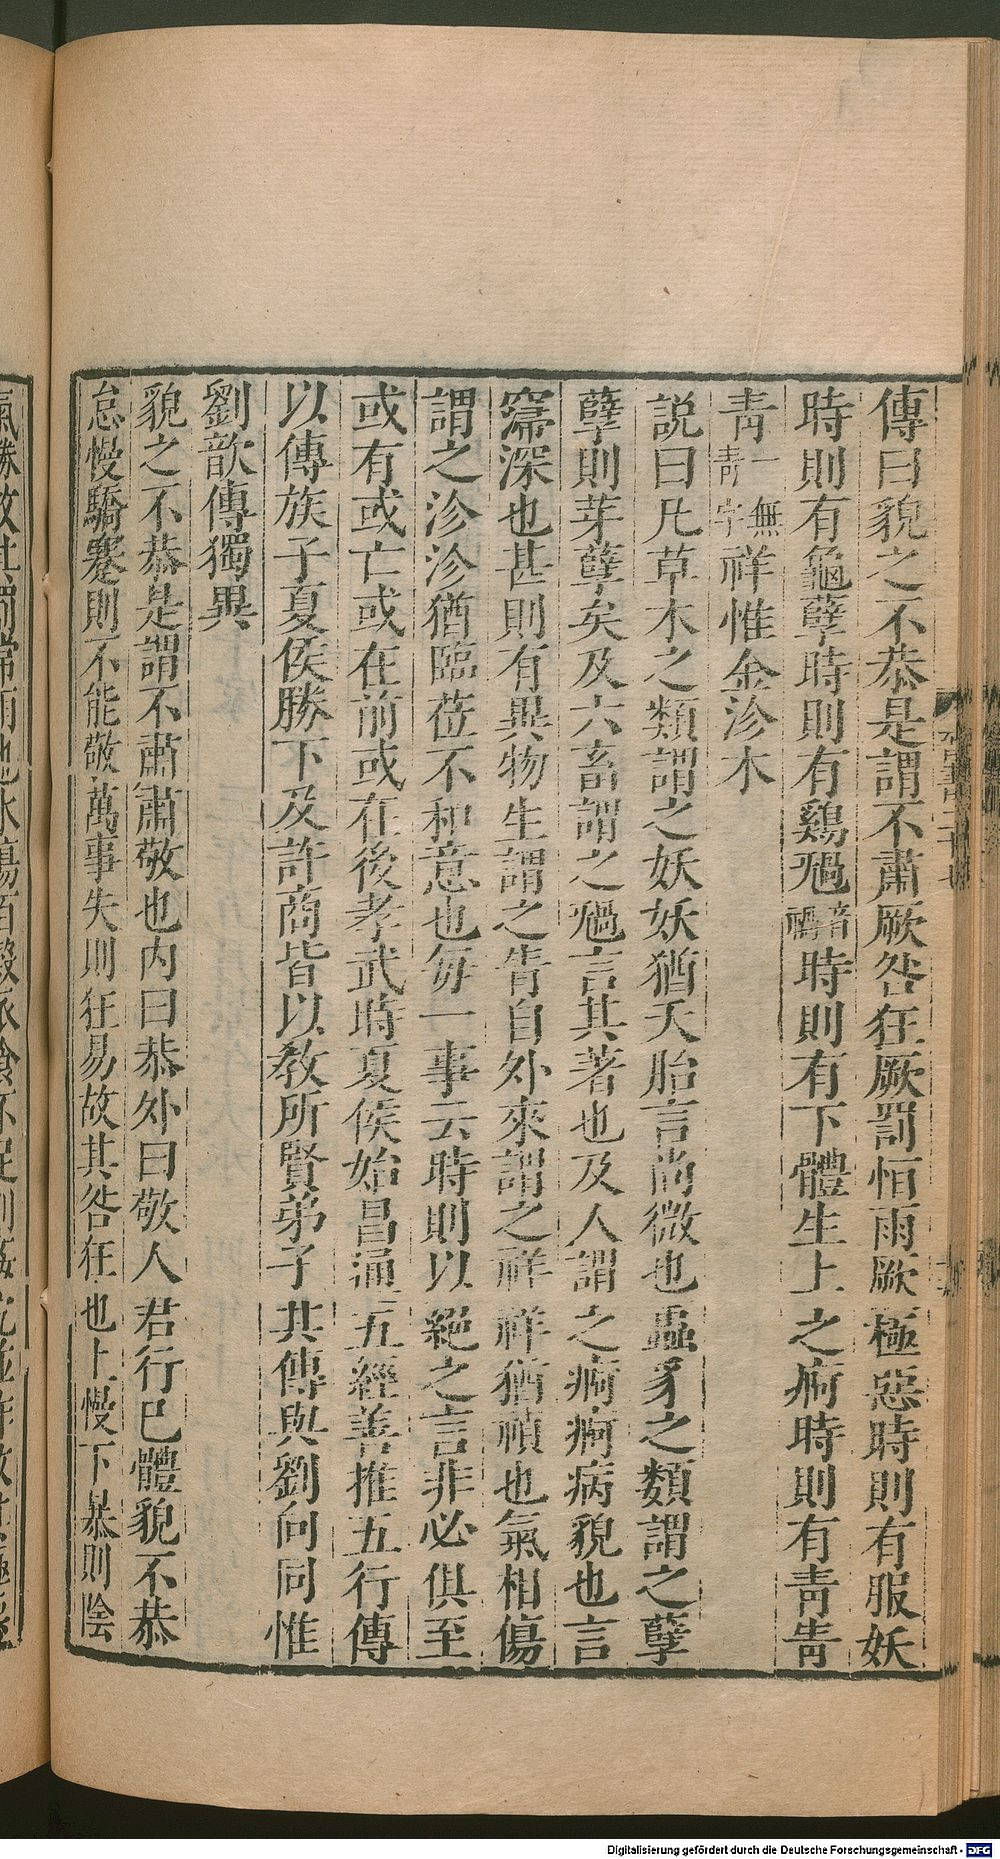 傳曰貌之不恭是謂不肅厥咎狂厥罰恒雨厥極惡時則有服妖
時則有龜孽時則有鷄𥚽音禍時則有下體生上之痾時則有青眚
青一無青字祥惟金沴木
說曰凡草木之類謂之妖妖猶夭胎言尚微也蟲豸之類謂之孽
孽則芽孽矣及六畜謂之𥚽言其著也及人謂之痾痾病貌也言
寖深也甚則有異物生謂之眚自外來謂之祥祥猶禎也氣相傷
謂之沴沴猶臨莅不和意也每一事云時則以絕之言非必俱至
或有或亡或在前或在後孝武時夏侯始昌通五經善推五行傳
以傳族子夏侯勝下及許商皆以教所賢弟子其傳與劉向同惟
劉歆傳獨異
貌之不恭是謂不肅肅敬也内曰恭外曰敬人君行已體貌不恭
怠慢驕蹇則不能敬萬事失則狂易故其咎狂也上慢下暴則陰
Digitalisierung gefördert durch die Deutsche Forschungsgemeinschaft - DFG